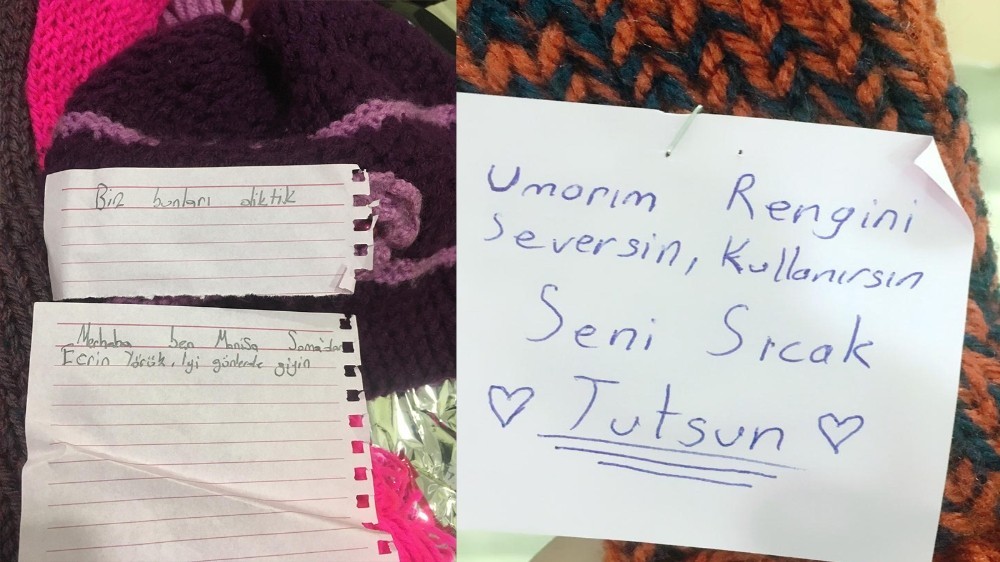 Biz bunları diktik
Merhaba ben Manisa Soma'dan
Ecrin Yörük, İyi günlerde giyin
Umarım Rengini
Seversin, Kullanırsın
Seni Sıcak
Tutsun